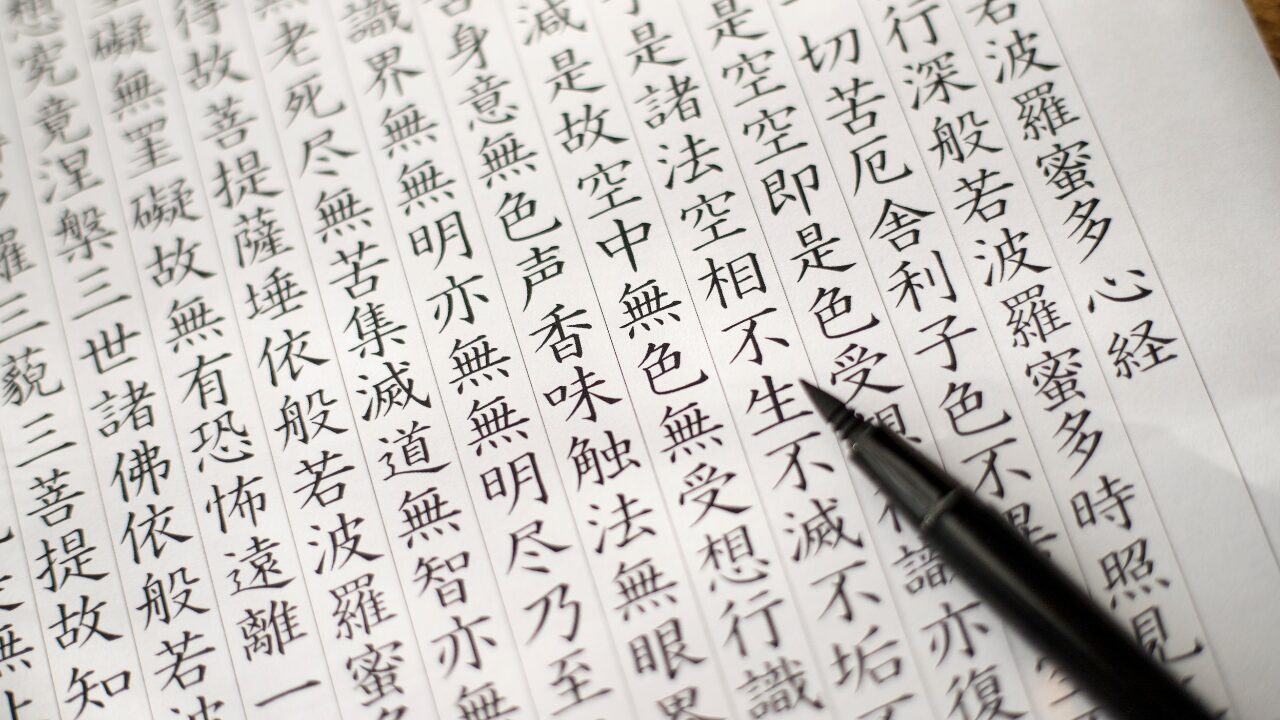 若波羅蜜多心経
行深般若波羅蜜多時照見
切苦厄舎利子色不異空
是空空即是色受想行識亦復
子是諸法空相不生不滅不垢不
減是故空中無色無受想行識
身意無色声香味触法無眼界
識界無無明亦無無明尽乃至
無老死尽無苦集滅道無智亦無
得故菩提薩埵依般若波羅蜜多
礙無罣礙故無有恐怖遠離一
想究竟涅槃三世諸佛依般若波
多羅三藐三菩提故知
無上